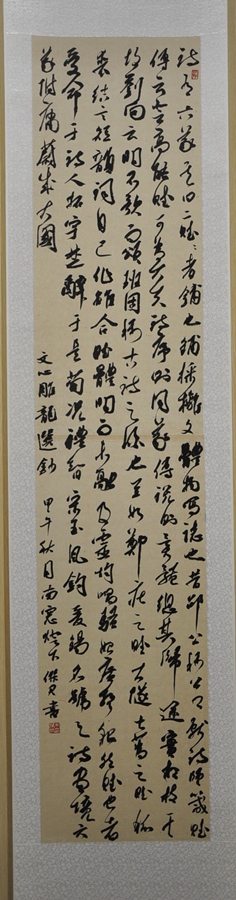 詩有六義其曰二賦〻者鋪也鋪採摛文體物寫誌也昔邵公稱公卿獻詩師箴瞍賦
傳云登高能賦可為大夫詩序則同義傳說則異體總其歸途實相枝幹
故劉向云明不歌而頌班固稱古詩之流也至如鄭莊之賦大隧士蒍之賦狐
裘結言短韻詞自己作雖合賦體明而未融及靈均唱騷始廣聲貌然賦也者
受命于詩人拓宇楚辭于是荀況禮智宋玉風釣爰錫名號之詩畫境六
義附庸蔚成大國
文心雕龍選鈔 甲午秋月南窓燈下 書